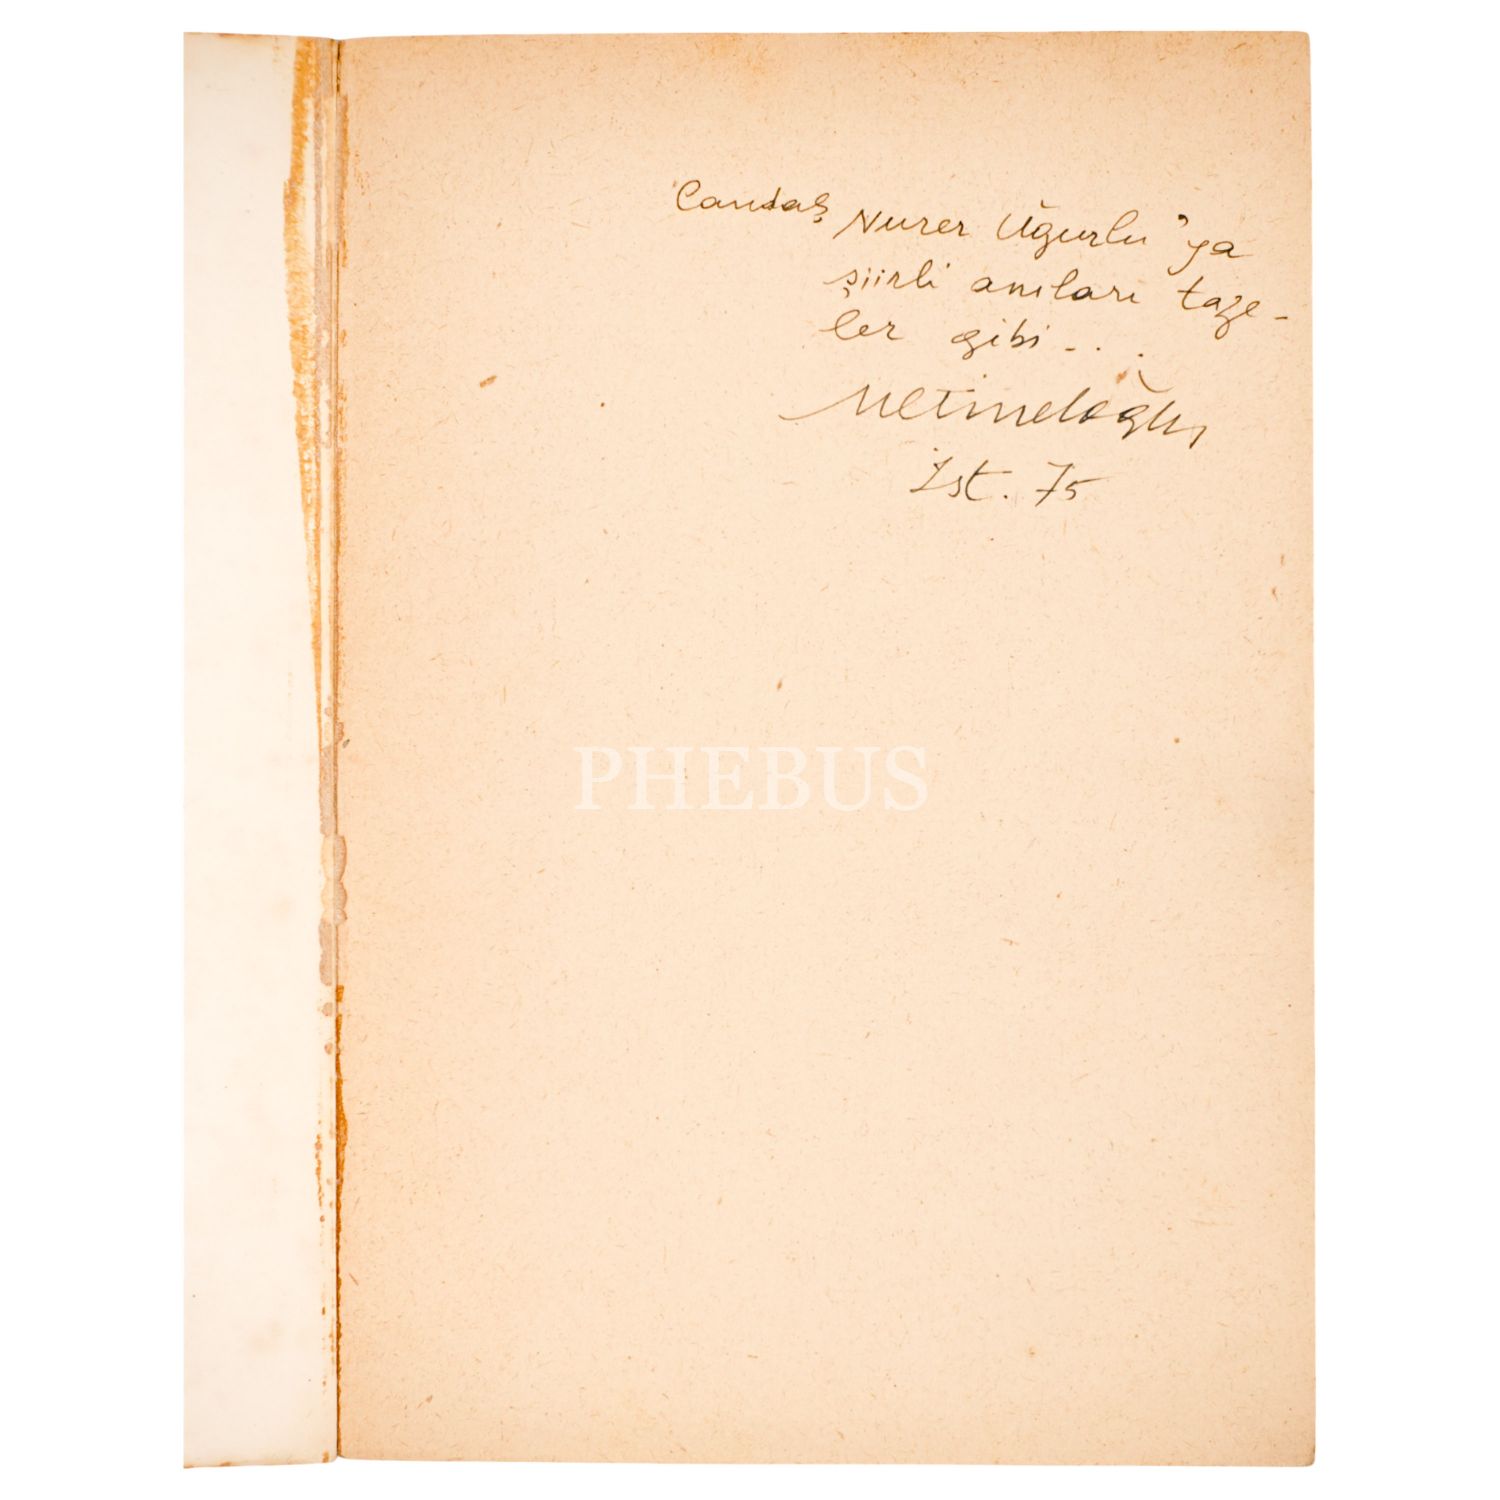 Candaş Nurer Uğurlu'ya
şiirli anıları taze-
ler gibi - . .
Metineloğlu
İst. 75
PHEBUS